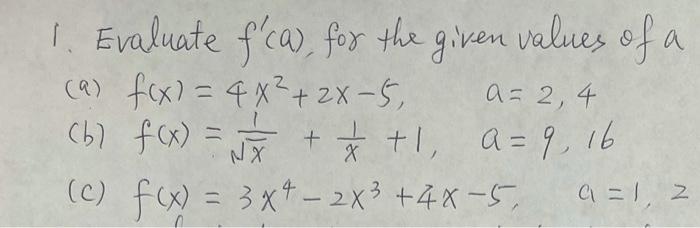 1. Evaluate f'(a), for the given values of a
(a) f(x) = 4x²+2x-5, a= 2, 4
(b) f(x) = 1/√x + 1/x +1, a= 9, 16
(c) f(x) = 3x⁴-2x³+4x-5, a=1, 2